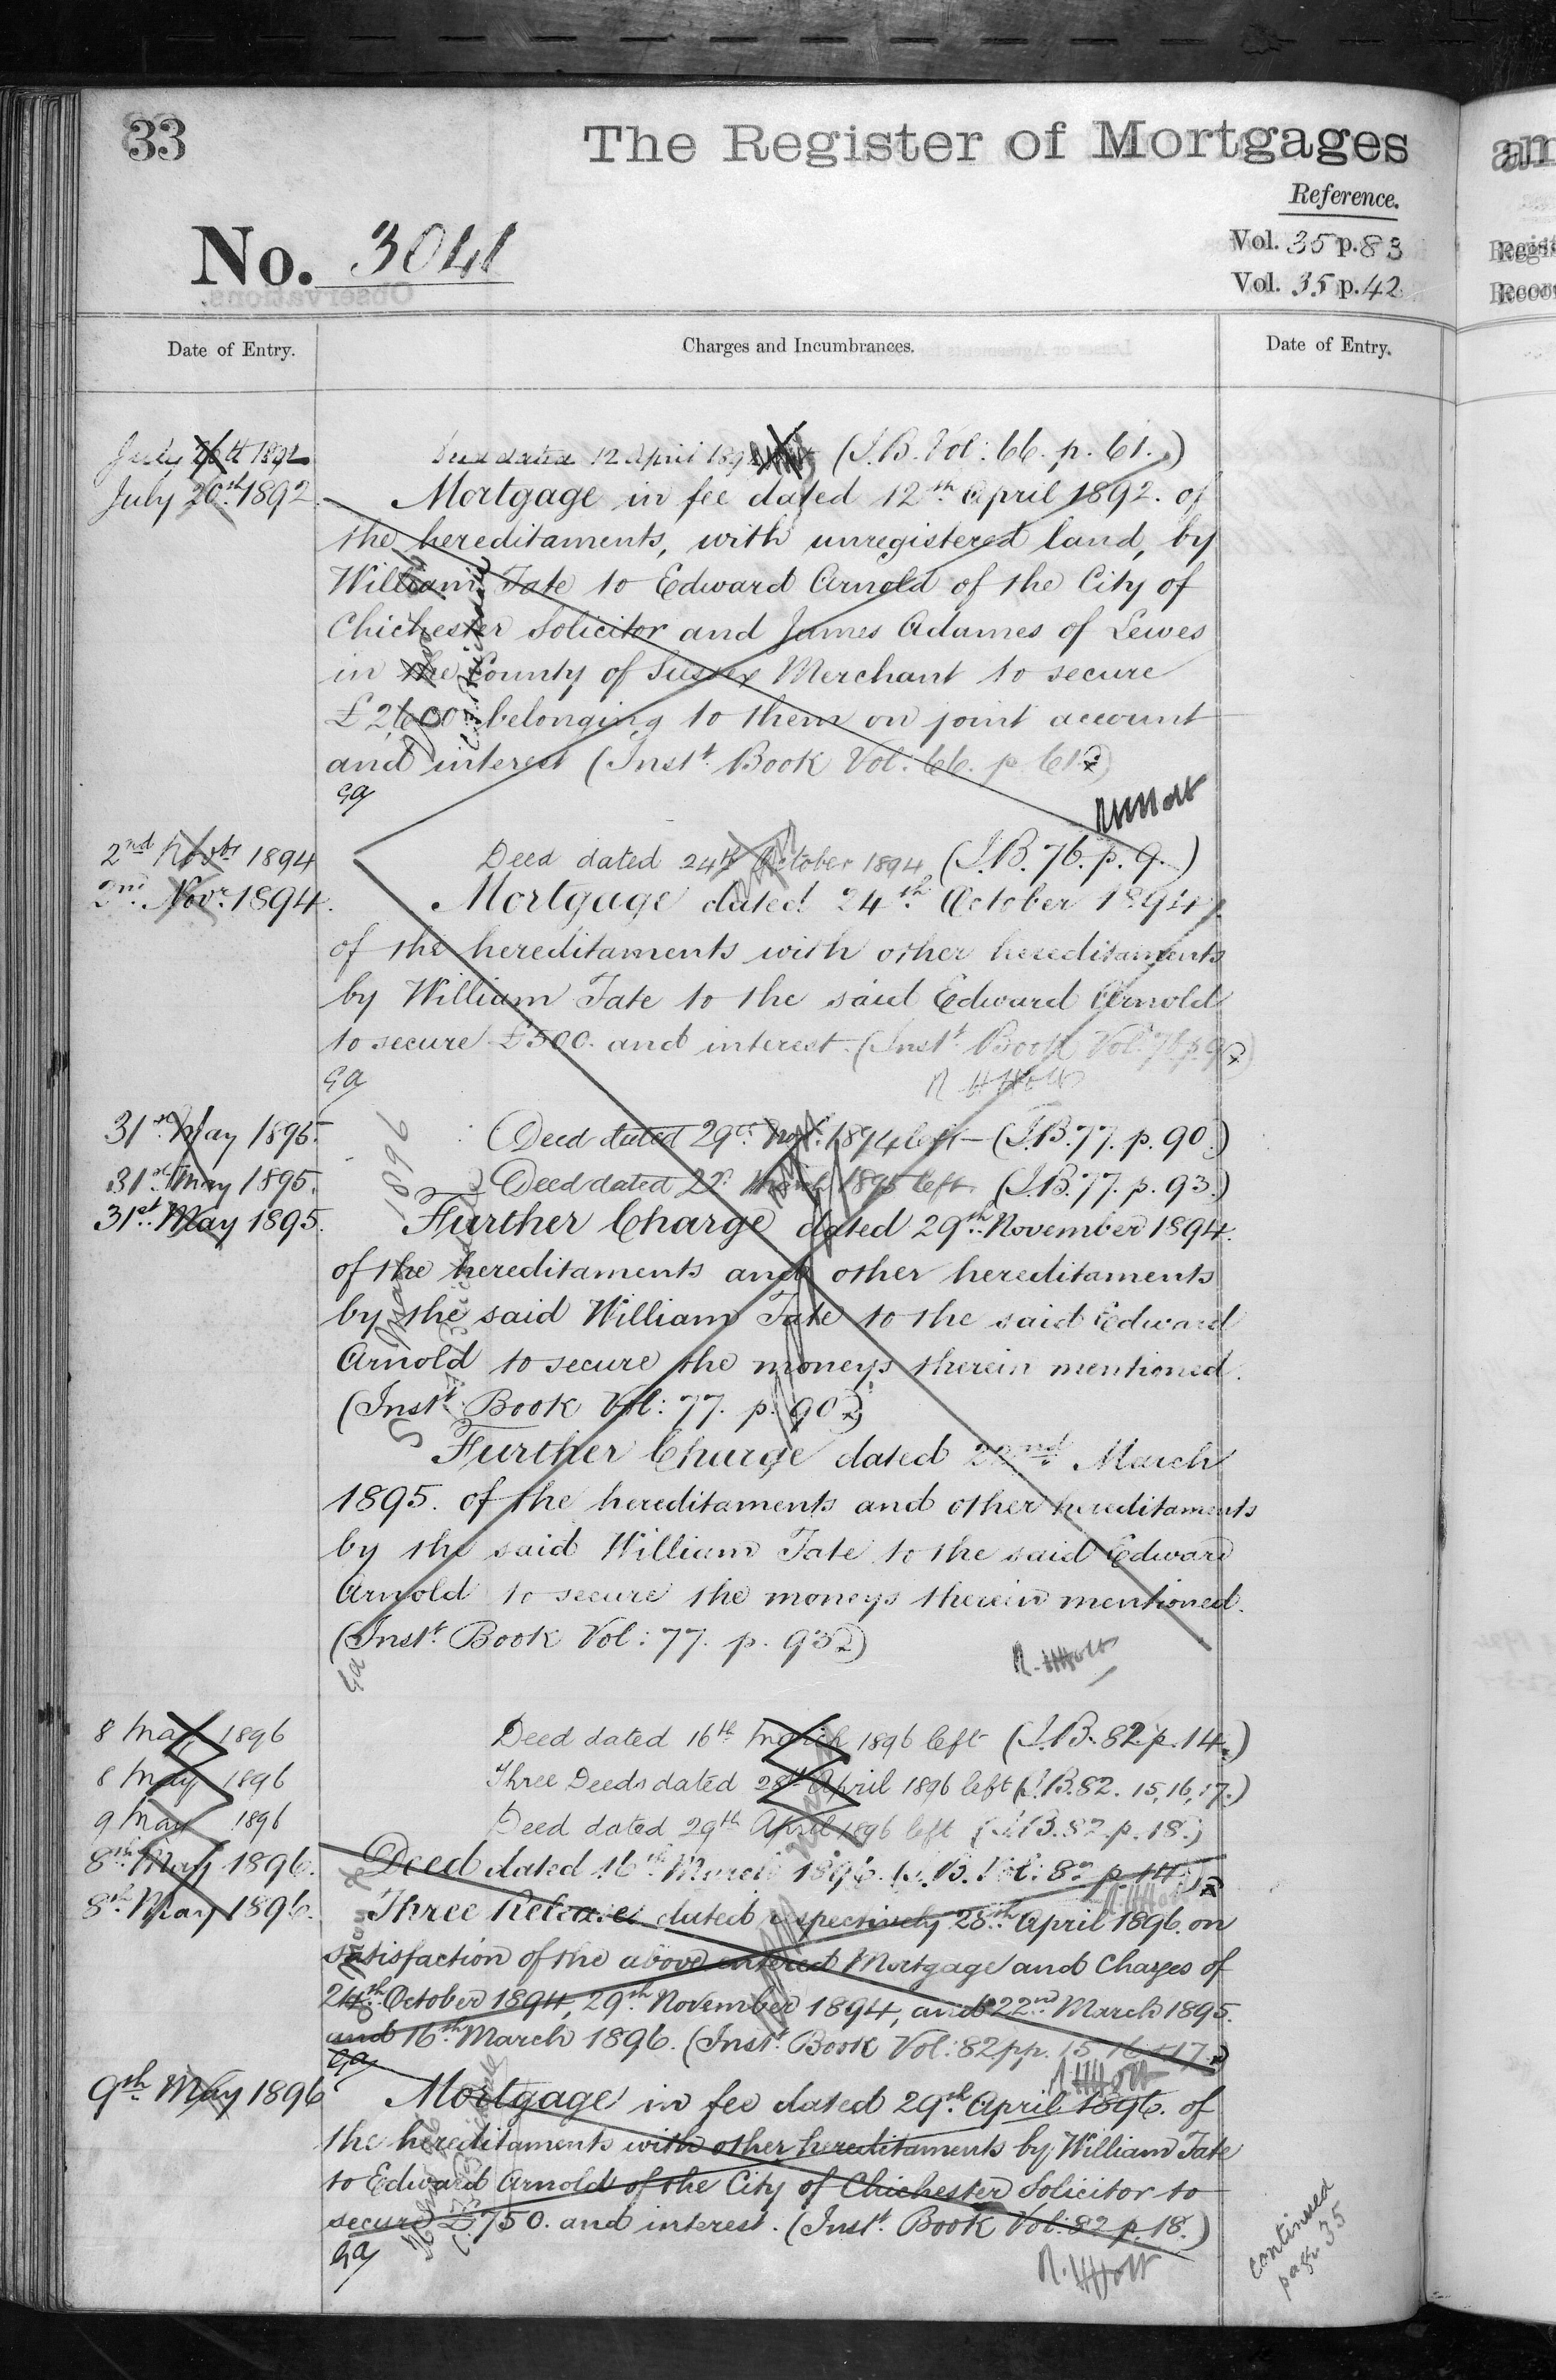 33
The Register of Mortgages
Reference.
No. 3041
Vol. 35 p. 83
Vol. 35 p. 42
Date of Entry.
Charges and Incumbrances.
Date of Entry.
July 20th 1892
Deed dated 12 April 1892 (I.B. Vol: 66. p. 61.)
July 20th 1892.
Mortgage in fee dated 12th April 1892. of
the hereditaments, with unregistered land, by
William Tate to Edward Arnold of the City of
Chichester Solicitor and James Adames of Lewes
in the County of Sussex Merchant to secure
£2,600 belonging to them on joint account
and interest (Inst. Book Vol: 66. p. 61.)
GA
2nd Novbr 1894
Deed dated 24th October 1894 (I.B. 76. p. 9.)
2nd Novr 1894.
Mortgage dated 24th October 1894
of the hereditaments with other hereditaments
by William Tate to the said Edward Arnold
to secure £500. and interest. (Inst. Book Vol: 76 p. 9)
GA
R.H.Holt
31st May 1895.
(Deed dated 29th Novr. 1894 left (I.B. 77. p. 90.)
31st May 1895.
Deed dated 22d March 1895 left. (I.B. 77. p. 93.)
31st May 1895.
Further Charge dated 29th November 1894.
of the hereditaments and other hereditaments
by the said William Tate to the said Edward
Arnold to secure the moneys therein mentioned.
(Inst. Book Vol: 77. p. 90.)
Further Charge dated 22nd March
1895. of the hereditaments and other hereditaments
by the said William Tate to the said Edward
Arnold to secure the moneys therein mentioned.
(Inst. Book Vol: 77. p. 93.)
GA
R.H.Holt
8 May 1896
Deed dated 16th March 1896 left (I.B. 82. p. 14.)
8 May 1896
Three Deeds dated 28th April 1896 left (I.B. 82. 15, 16, 17.)
9 May 1896
Deed dated 29th April 1896 left (I.B. 82. p. 18.)
8th May 1896.
Deed dated 16th March 1896. (I.B. Vol: 82 p. 14)
R.H.Holt
8th May 1896.
Three Releases dated respectively 28th April 1896. on
satisfaction of the above entered Mortgage and Charges of
24th October 1894, 29th November 1894, and 22nd March 1895.
and 16th March 1896. (Inst. Book Vol: 82 pp. 15, 16 & 17.)
GA
R.H.Holt
9th May 1896
Mortgage in fee dated 29th April 1896. of
the hereditaments with other hereditaments by William Tate
to Edward Arnold of the City of Chichester Solicitor to
secure £750. and interest. (Inst. Book Vol: 82 p. 18.)
GA
R.H.Holt
continued
page 35